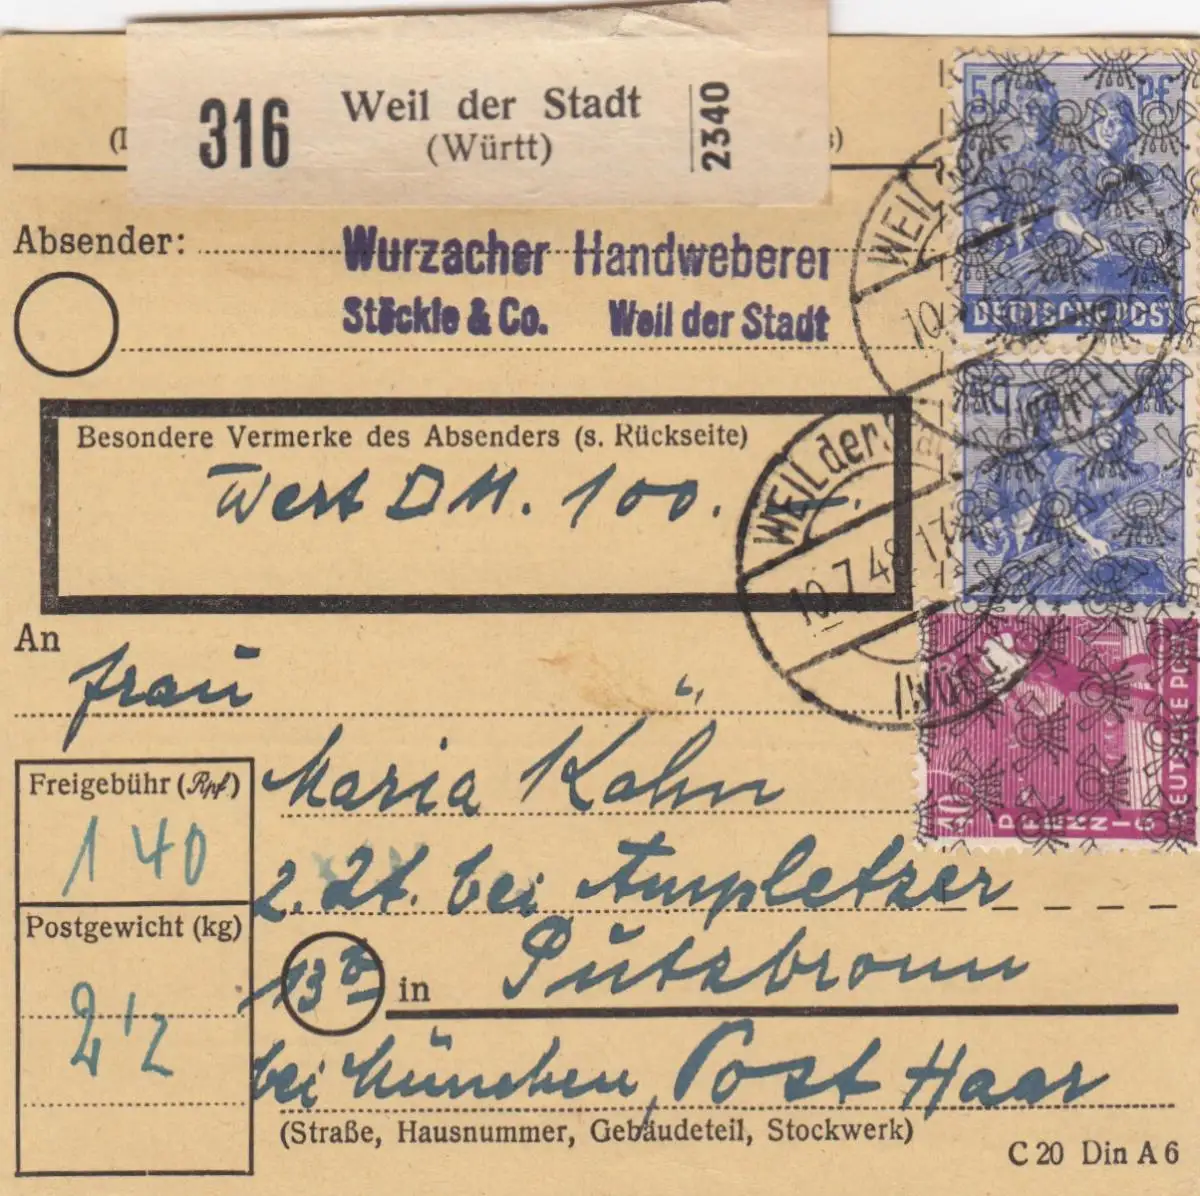 316 Weil der Stadt
(Württ)
2340
Absender:
Wurzacher Handweberei
Stöckle & Co. Weil der Stadt
Besondere Vermerke des Absenders (s. Rückseite)
Wert DM. 100.—.
An
Frau
Maria Kahn
z. Zt. bei Ampletzer
13b in Putzbrunn
bei München, Post Haar
(Straße, Hausnummer, Gebäudeteil, Stockwerk)
C 20 Din A 6
Freigebühr (Rpf)
1 40
Postgewicht (kg)
2 1/2
50 Pf
DEUTSCHE POST
WEIL der Stadt
10.7.48.17
(WÜRTT)
WEIL
10
(WÜRTT)
40
PFENNIG
DEUTSCHE POST